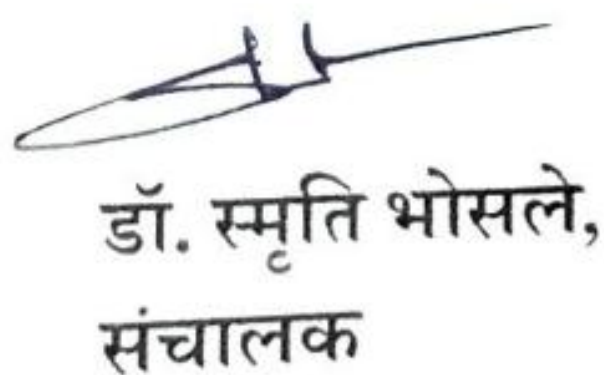 डॉ. स्मृति भोसले,
संचालक